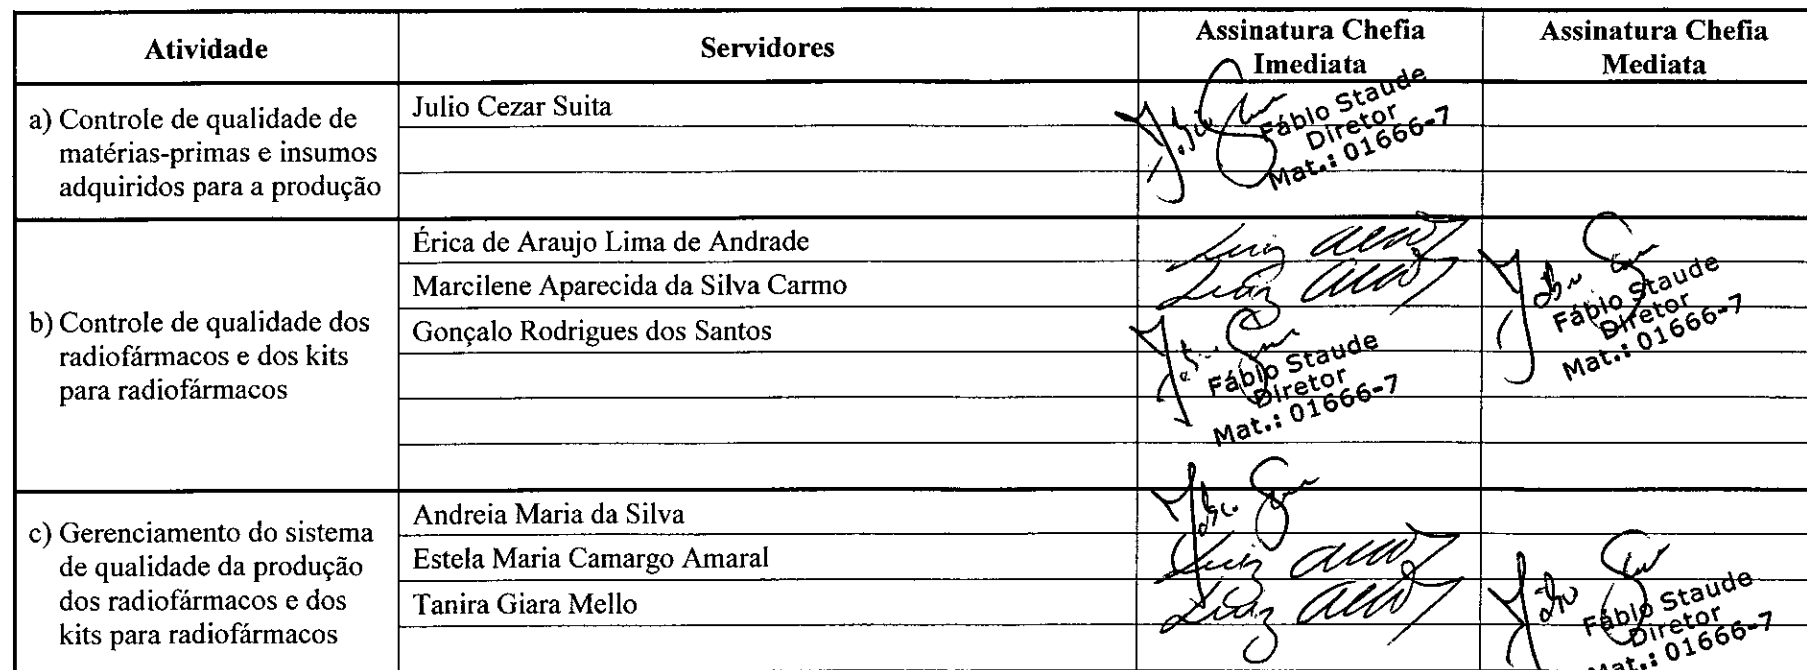 Atividade
Servidores
Assinatura Chefia
Imediata
Assinatura Chefia
Mediata
a) Controle de qualidade de
matérias-primas e insumos
adquiridos para a produção
Julio Cezar Suita
Fábio Staude
Diretor
Mat.: 01666-7
b) Controle de qualidade dos
radiofármacos e dos kits
para radiofármacos
Érica de Araujo Lima de Andrade
Marcilene Aparecida da Silva Carmo
Gonçalo Rodrigues dos Santos
Fábio Staude
Diretor
Mat.: 01666-7
Fábio Staude
Diretor
Mat.: 01666-7
c) Gerenciamento do sistema
de qualidade da produção
dos radiofármacos e dos
kits para radiofármacos
Andreia Maria da Silva
Estela Maria Camargo Amaral
Tanira Giara Mello
Fábio Staude
Diretor
Mat.: 01666-7